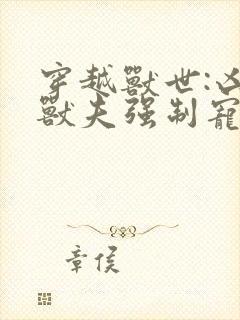 穿越獸世:凶
獸夫强制寵
章侯